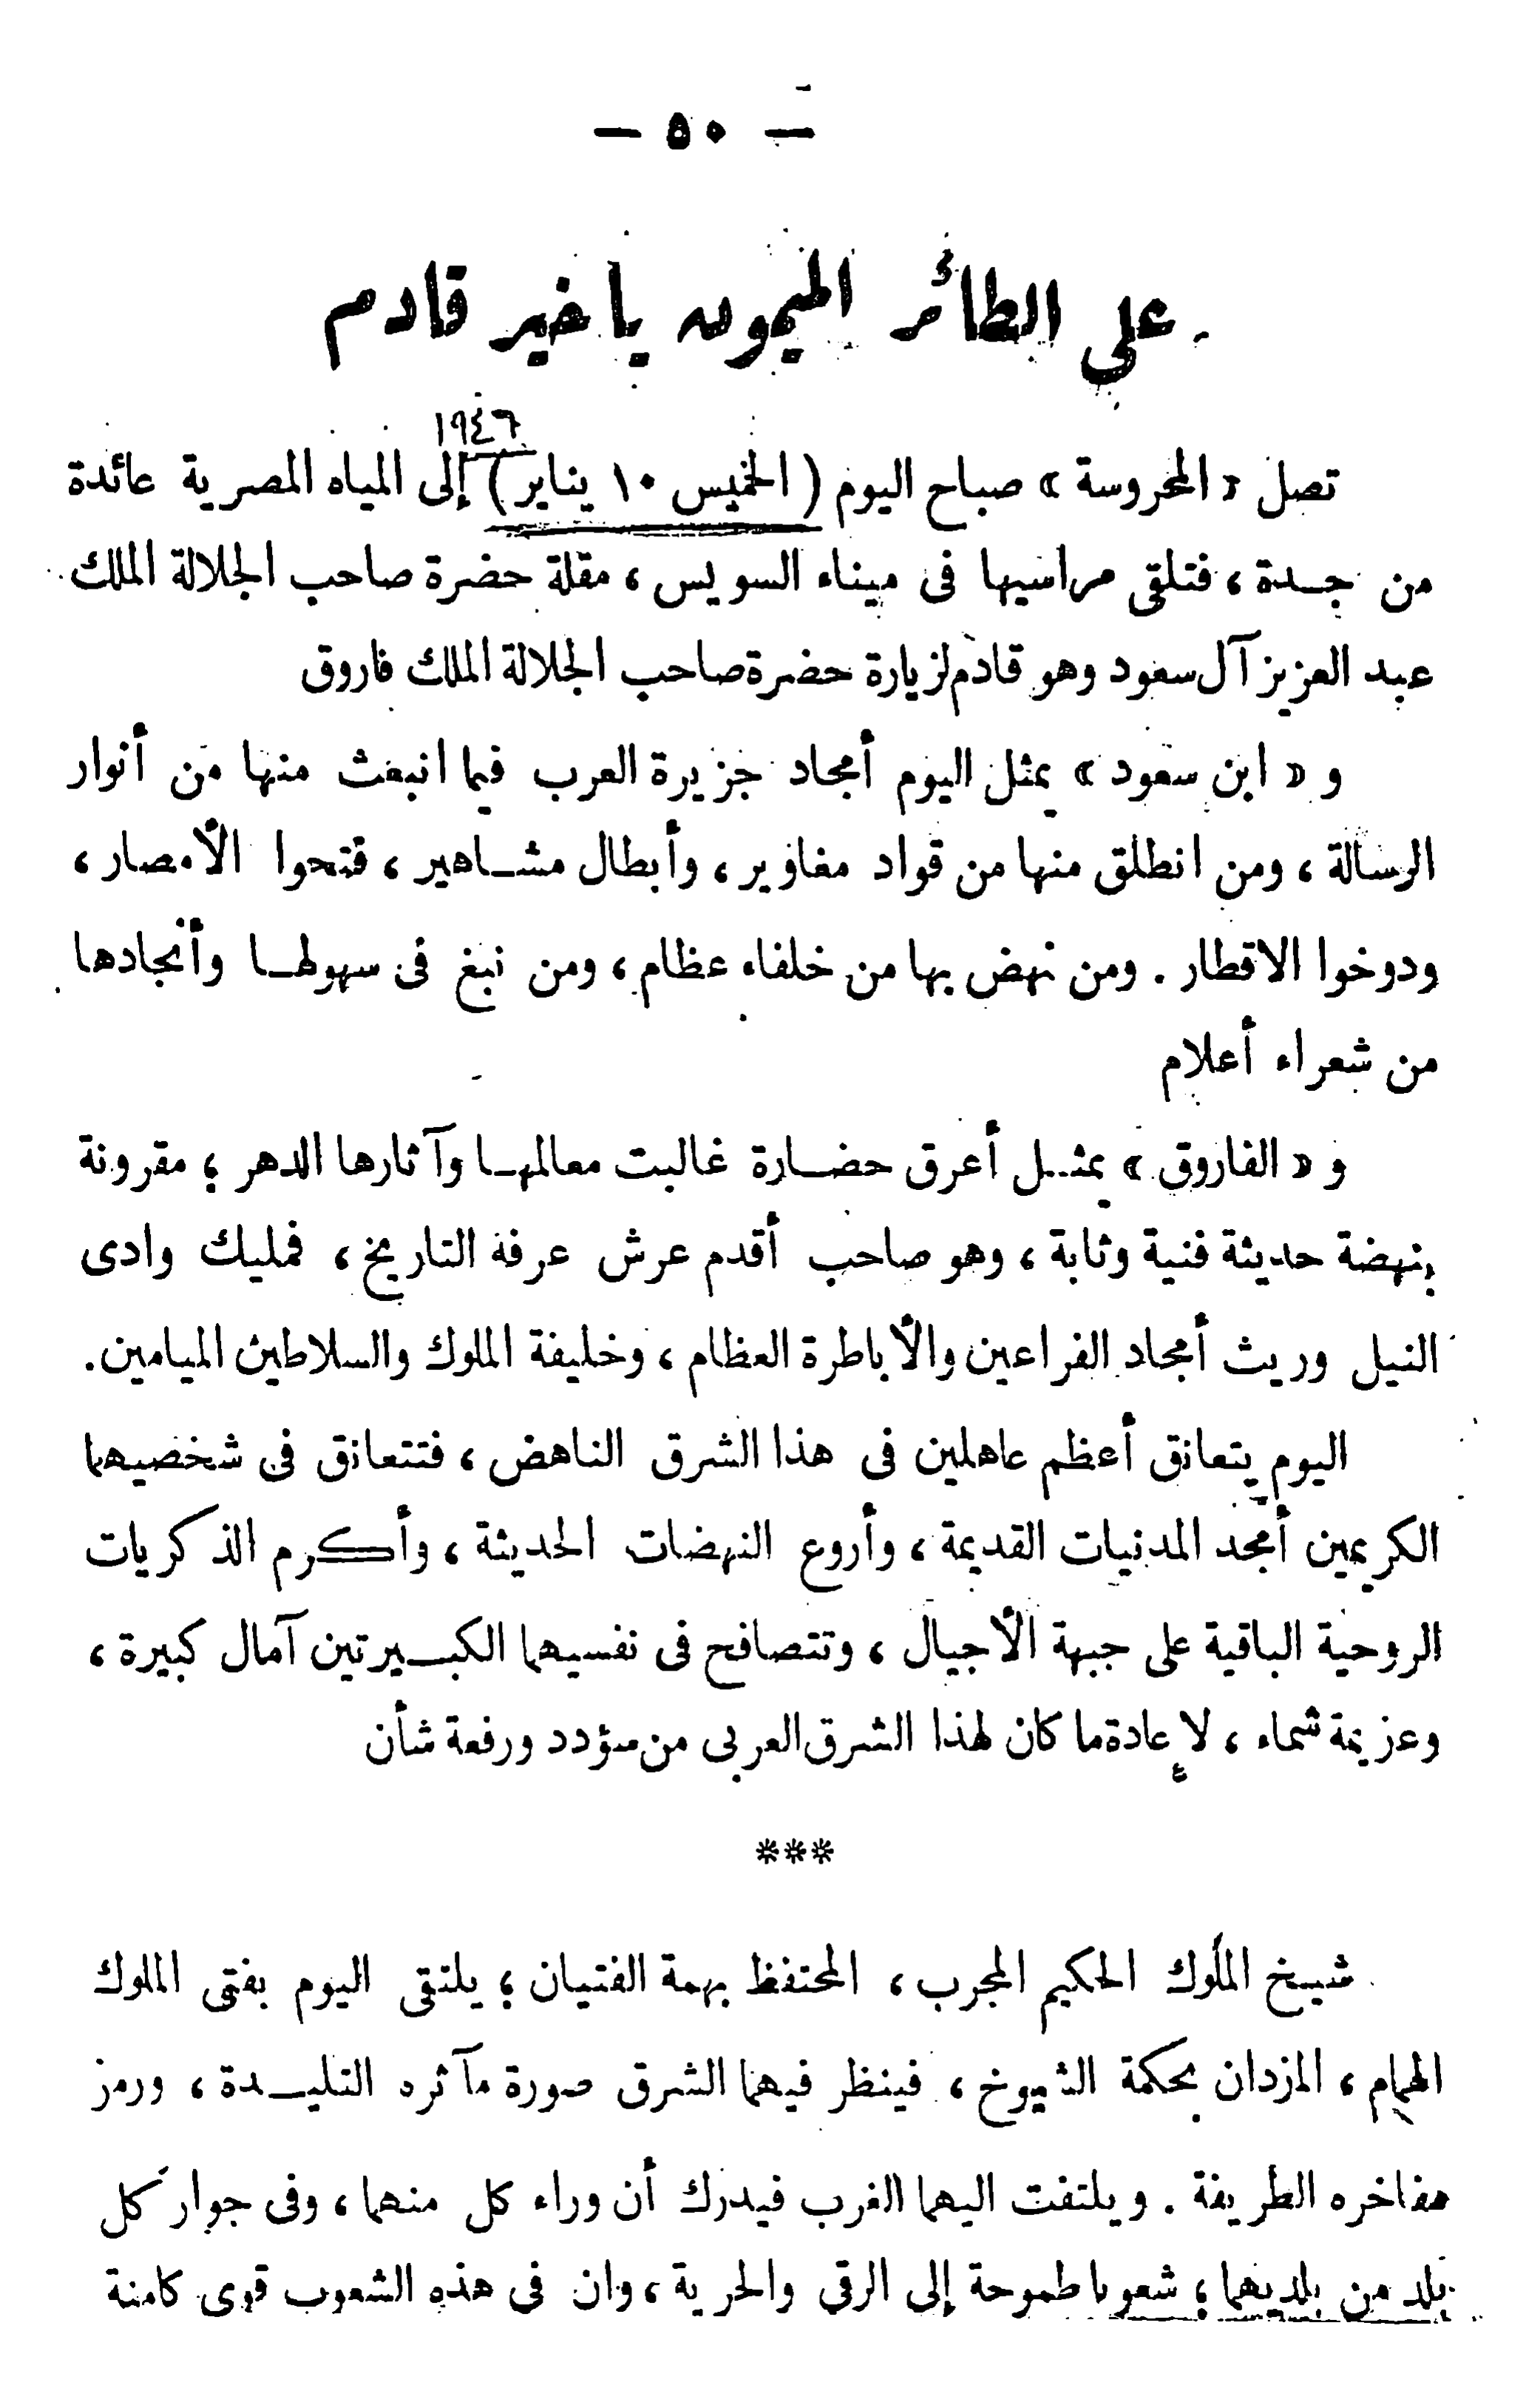 — ٥٠ —
على الطائر الميمون يا خير قادم
١٩٤٦
تصل « المحروسة » صباح اليوم ( الخميس ١٠ يناير ) إلى المياه المصرية عائدة
من جـدة ، فتلقى مراسيها فى ميناء السويس ، مقلة حضرة صاحب الجلالة الملك
عبد العزيز آل سعود وهو قادم لزيارة حضرة صاحب الجلالة الملك فاروق
و « ابن سعود » يمثل اليوم أمجاد جزيرة العرب فيما انبعث منها من أنوار
الرسالة ، ومن انطلق منها من قواد مغاوير ، وأبطال مشـاهير ، فتحوا الأمصار ،
ودوخوا الاقطار . ومن نهض بها من خلفاء عظام ، ومن نبغ فى سهولهـا وأنجادها
من شعراء أعلام
و « الفاروق » يمثـل أعرق حضـارة غالبت معالمهـا وآثارها الدهر ؛ مقرونة
بنهضة حديثة فتية وثابة ، وهو صاحب أقدم عرش عرفه التاريخ ، فمليك وادى
النيل وريث أمجاد الفراعين والأباطرة العظام ، وخليفة الملوك والسلاطين الميامين .
اليوم يتعانق أعظم عاهلين فى هذا الشرق الناهض ، فتتعانق فى شخصيهما
الكريمين أمجد المدنيات القديمة ، وأروع النهضات الحديثة ، وأكرم الذكريات
الروحية الباقية على جبهة الأجيال ، وتتصافح فى نفسيهما الكبـيرتين آمال كبيرة ،
وعزيمة شماء ، لإعادة ما كان لهذا الشرق العربى من سؤدد ورفعة شأن
***
شيخ الملوك الحكيم المجرب ، المحتفظ بهمة الفتيان ؛ يلتقى اليوم بفتى الملوك
الهمام ، المزدان بحكمة الشيوخ ، فينظر فيهما الشرق صورة مآثره التليـدة ، ورمز
مفاخره الطريفة . ويلتفت اليهما الغرب فيدرك أن وراء كل منهما ، وفى جوار كل
بلد من بلديهما ؛ شعوبا طموحة إلى الرقى والحرية ، وان فى هذه الشعوب قوى كامنة